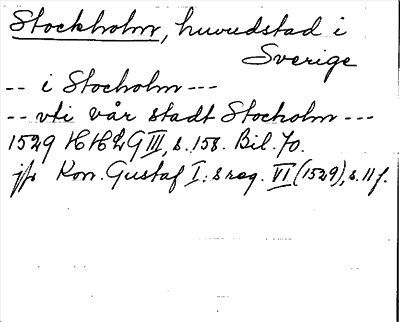 Stockholm, huvudstad i
Sverige
-- i Stocholm ---
-- vti vår stadt Stocholm ---
1529 HH2 G III, s. 158. Bil. 70.
jfr Kon. Gustaf I:s reg. VI (1529), s. 11 f.